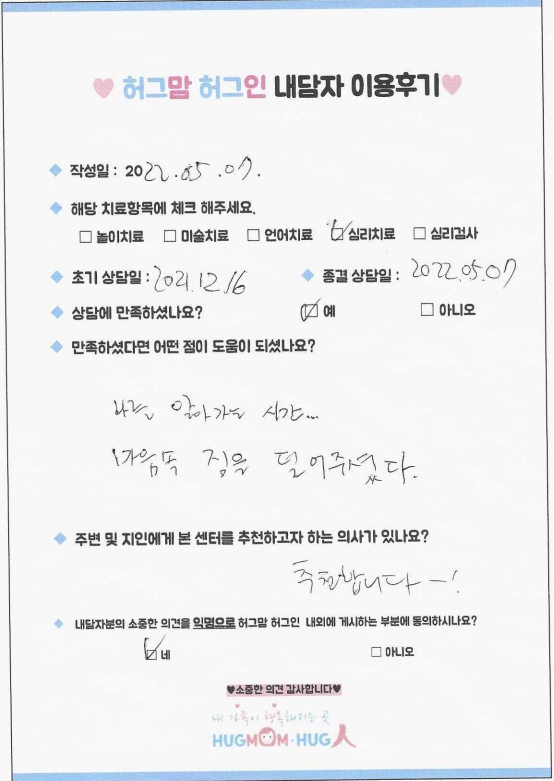 ♥ 허그맘 허그인 내담자 이용후기 ♥
◆ 작성일 : 2022.05.07.
◆ 해당 치료항목에 체크 해주세요.
□ 놀이치료 □ 미술치료 □ 언어치료 ☑ 심리치료 □ 심리검사
◆ 초기 상담일 : 2021.12.16 ◆ 종결 상담일 : 2022.05.07
◆ 상담에 만족하셨나요? ☑ 예 □ 아니오
◆ 만족하셨다면 어떤 점이 도움이 되셨나요?
나를 알아가는 시간...
마음속 짐을 덜어주셨다.
◆ 주변 및 지인에게 본 센터를 추천하고자 하는 의사가 있나요?
추천합니다 ㅡ!
◆ 내담자분의 소중한 의견을 익명으로 허그맘 허그인 내외에 게시하는 부분에 동의하시나요?
☑ 네 □ 아니오
♥소중한 의견 감사합니다♥
내 가족이 행복해지는 곳
HUGMOM·HUG人